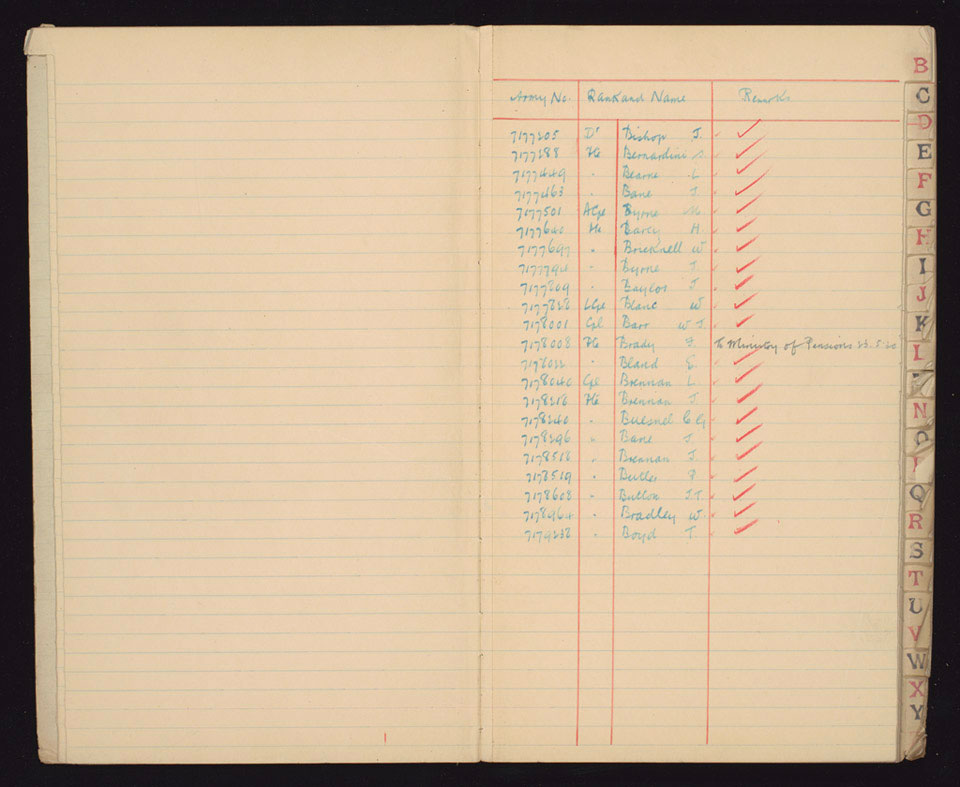 Army No. Rank and Name Remarks
7177205 Dr Bishop J.
7177288 Pte Bernardini S.
7177449 " Bearne L
7177463 " Bane J.
7177501 A/Cpl Byrne M.
7177640 Pte Darcy H
7177697 " Bricknell W
" Byrne J.
7177809 " Baylor J
7177828 L/Cpl Blanc W
7178001 Cpl Barr W. J.
7178008 Pte Brady J. To Ministry of Pensions 23.5.22
7178022 " Bland E.
7178040 Cpl Brennan L.
7178218 Pte Brennan J.
7178240 " Buesnel C G
7178296 " Bane J.
7178518 " Brennan J.
7178519 " Butler P
7178608 " J.T.
7178964 " Bradley W.
7179238 " Boyd T.
B
C
D
E
F
G
H
I
J
K
L
N
O
Q
R
S
T
U
V
W
X
Y